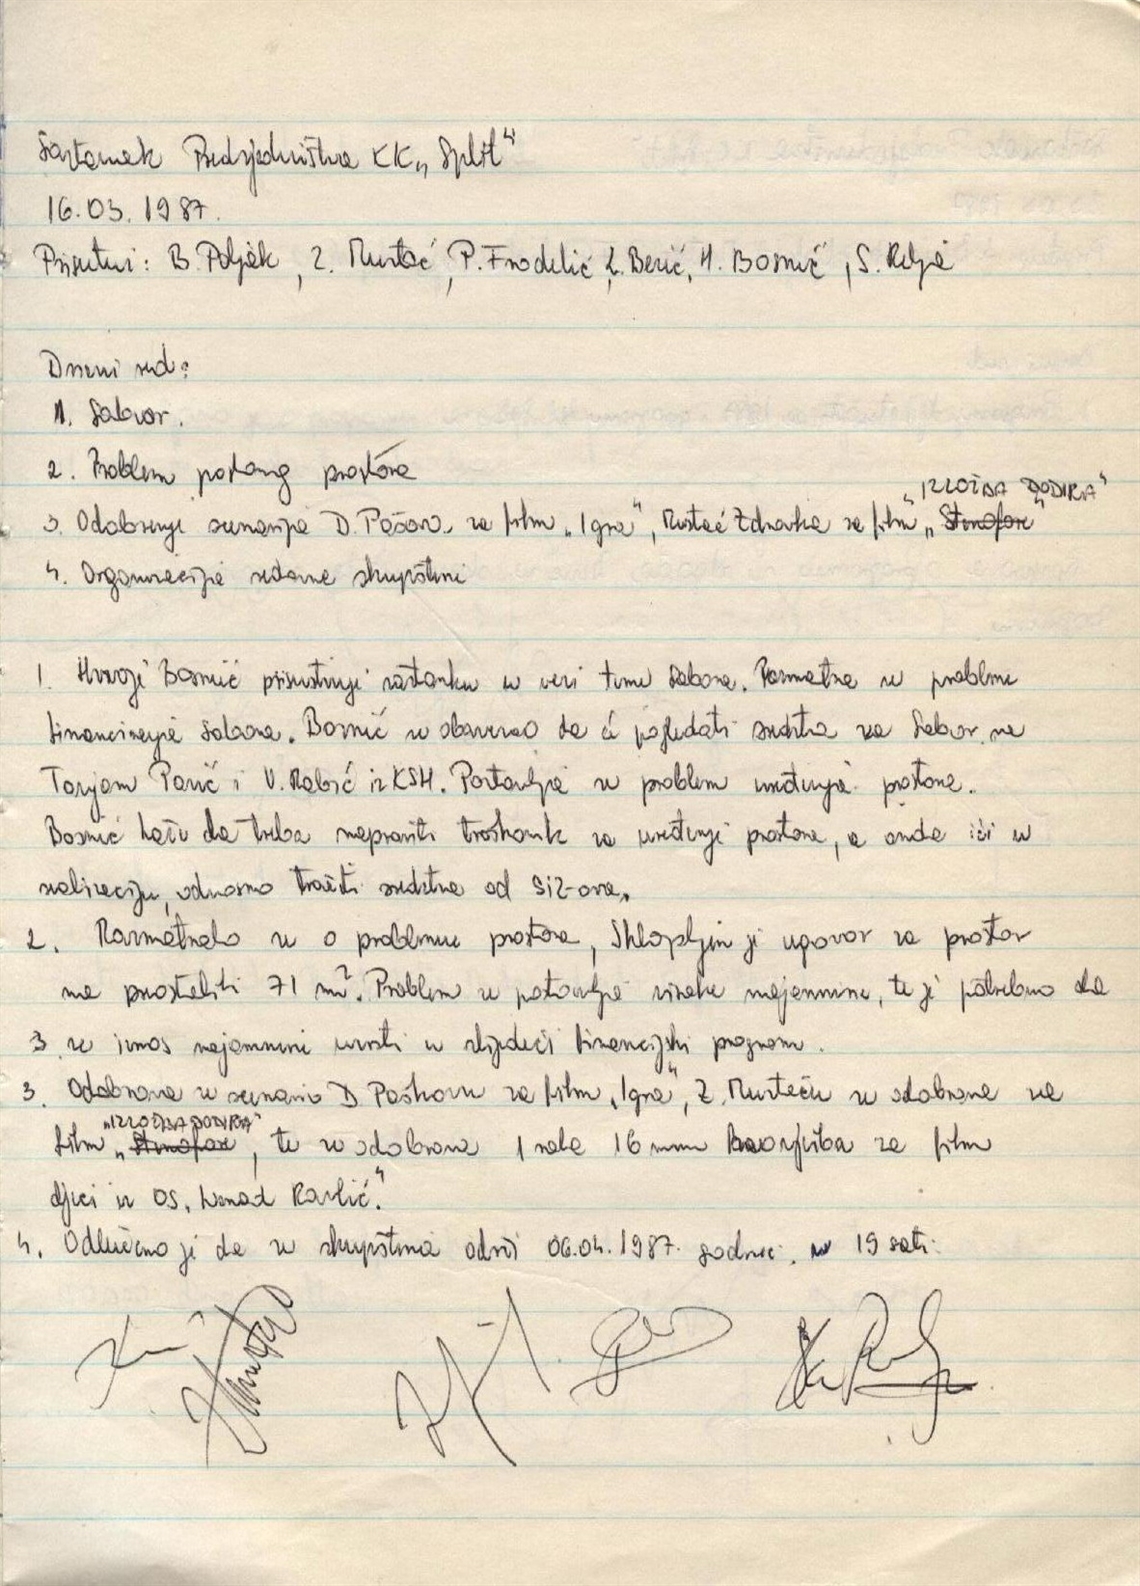 Sastanak Predsjedništva KK „Split"
16.03.1987.
Prisutni: B. Poljak, Z. Mustać, P. Fradelić, L. Berić, H. Bosnić, S. Relja
Dnevni red:
1. Sabor.
2. Problem poslovnog prostora
„IZLOŽBA DODIRA"
3. Odobrenje scenarija D. Paškov za film „Igra", Mustać Zdravka za film „"
4. Organizacija redovne skupštine
1. Hrvoje Bosnić prisustvuje sastanku u vezi teme Sabora. Razmatra se problem
financiranja Sabora. Bosnić se obavezao da će pogledati sredstva za Sabor na
V. Rabić iz KSH. Postavlja se problem uređenja prostora.
Bosnić kaže da treba napraviti troškovnik za uređenje prostora, a onda ići u
realizaciju, odnosno tražiti sredstva od SIZ-ova.
2. Razmatralo se o problemu prostora, Sklopljen je ugovor za prostor
na 71 m². Problem se postavlja visoke najamnine, te je potrebno da
3 se iznos najamnine uvrsti u slijedeći financijski program.
3. Odobrava se scenario D. Paškovu za film „Igra", Z. Mustaću se odobrava za
„IZLOŽBA DODIRA"
film „", te se odobrava 1 rola 16 mm za film
djeci iz OŠ. Ravlić."
4. Odlučeno je da se skupština održi 06.04.1987. godine. u 19 sati.